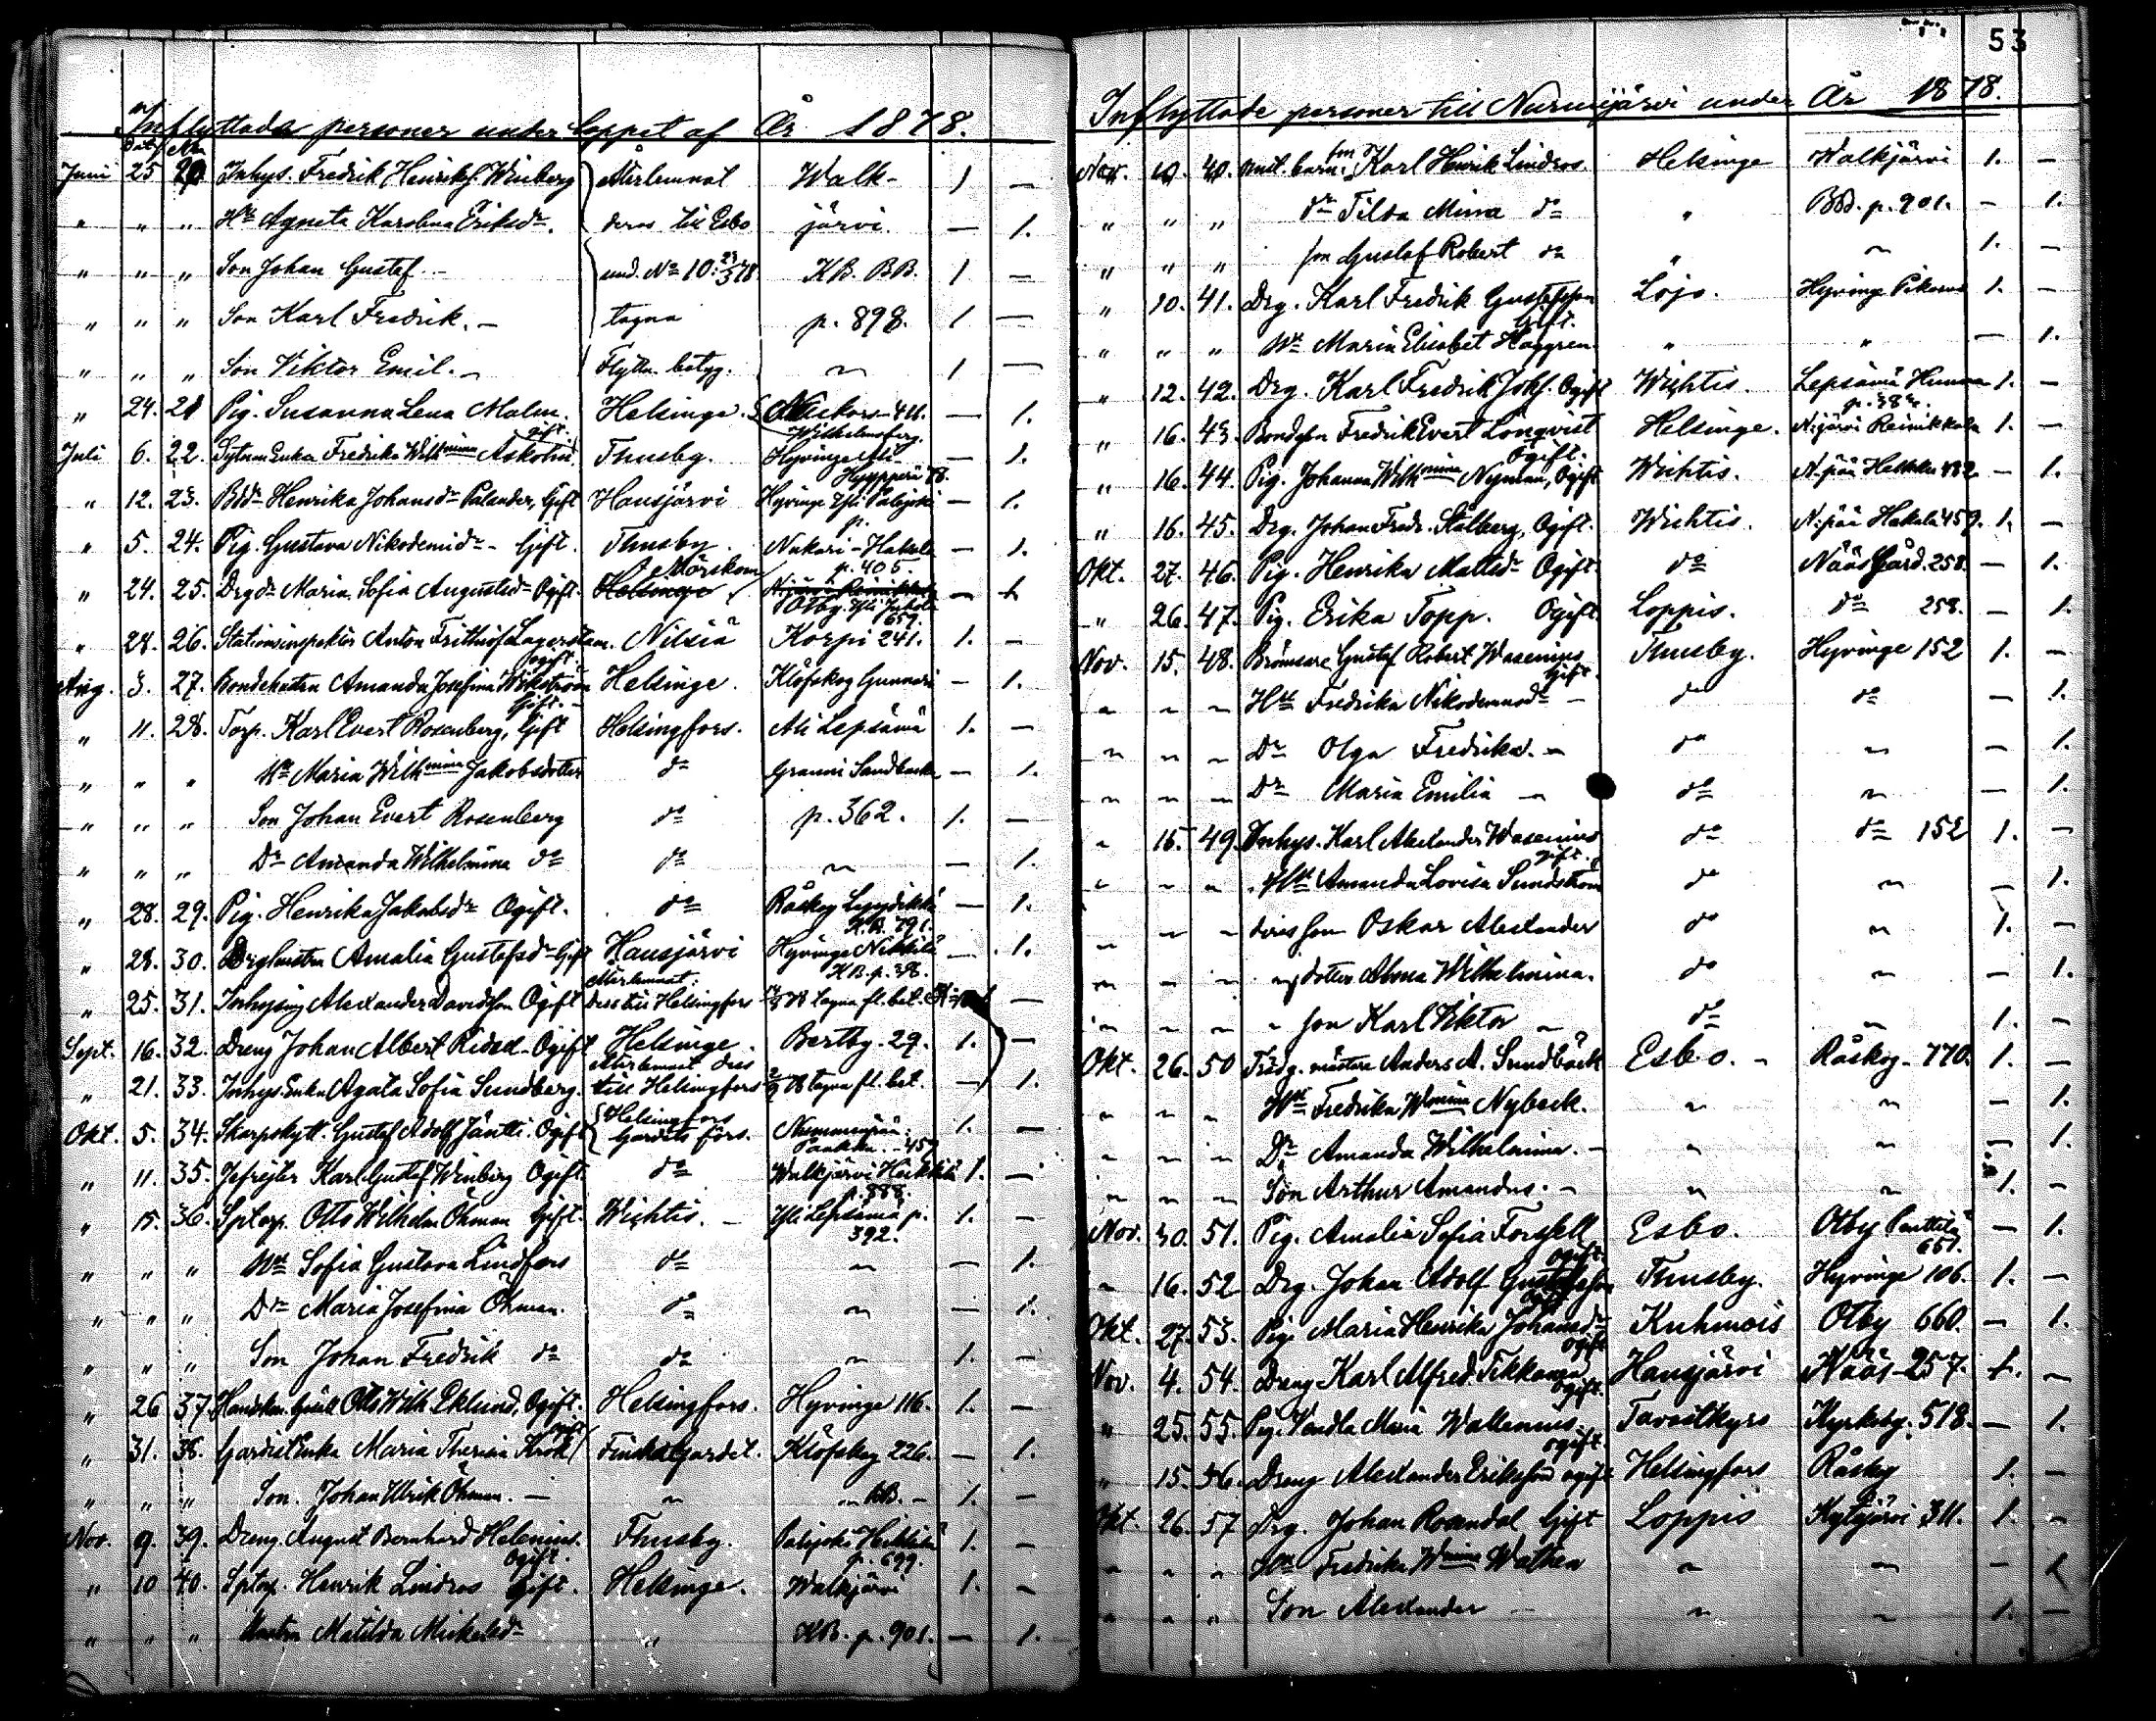 Inflyttade personer under loppet af År 1878.
Dat. No
Juni 25 20 Inhys. Fredrik Henriks. Winberg Återlemnat Walk- 1 —
" " " H:u Agneta Karolina Eriksdr. deras till Esbo järvi. — 1.
" " " Son Johan Gustaf. — sand. No 10. 23/5 78. KB. BB. 1 —
" " " Son Karl Fredrik. — tagna p. 898. 1 —
" " " Son Viktor Emil. — Flytln. betyg. " 1 —
" 24. 21 Pig. Susanna Lena Malm. Helsinge. — 1.
Wilhelmsberg.
gift.
Juli 6. 22. Sytn. Enka Fredrika Wilhmina Askolin. Thusby. Hyvinge — 1.
Hyyppärä 78.
" 12. 23. Bdd:r Henrika Johansdr Palander, Gift Hausjärvi Hyvinge Yli Palojoki — 1.
p.
" 5. 24. Pig. Gustava Nikodemidr - Gift. Thusby. Nukari - Hakala — 1.
Mörskom p. 405.
" 24. 25. Drgdr Maria Sofia Augustdr Ogift. Helsinge N:järvi Reinikkala — 1
Otby. Yli Jakola
659.
" 28. 26. Stationsinspektör Anton Frithiof Lagerstam. Nilsiä Korpi 241. 1. —
ogift.
Aug. 3. 27. Bondehustru Amanda Josefina Wikström Helsinge. Klöfskog Gunnari — 1.
Gift. —
" 11. 28. Torp. Karl Evert Rosenberg, Gift Helsingfors. Ali Lepsämä 1. —
" " " H:u Maria Wilhmina Jakobsdotter do Granni Sandbacka — 1.
" " " Son Johan Evert Rosenberg do p. 362. 1. —
" " " Dr Amanda Wilhelmina do do " — 1.
" 28. 29. Pig. Henrika Jakobsdr Ogift. do Råskog — 1.
K.B. 791.
" 28. 30. Drghustru Amalia Gustafsdr Gift Hausjärvi Hyvinge Nikkilä — 1.
Återlemnat. KB. p. 38.
" 25. 31. Inhysing Alexander Davidson Ogift dess till Helsingfors tagna fl. bet. 1 —
Sept. 16. 32. Dreng Johan Albert Ridsel - Ogift Helsinge. Bertby. 29. 1. —
Återlemnat dess
" 21. 33. Inhys. Enka Agata Sofia Sundberg. till Helsingfors tagna fl. bet. — 1.
Helsingfors
Okt. 5. 34. Skarpskytt. Gustaf Adolf Jäntti. Ogift Gardets förs. Nummenpää. 1. —
Pankka. — 457
" 11. 35. Jefrejter Karl Gustaf Winberg Ogift. do Walkjärvi Heikkilä 1. —
p. 888.
" 15. 36. Sptorp. Otto Wilhelm Öhman Gift. Wichtis. — Yli Lepsämä p. 1. —
392.
" " " H:u Sofia Gustava Lindfors do " — 1.
" " " Dr Maria Josefina Öhman. do " — 1.
" " " Son Johan Fredrik do do " 1. —
" 26 37. Handskm. Gesäll Otto Wilh Eklund, Ogift. Helsingfors. Hyvinge 116. 1. —
" 31. 38. Gardist Enka Maria Theresia Krok Finska Gardet. Klöfskog 226. — 1.
" " " Son. Johan Ulrik Öhman. — " " BB. — 1. —
Nov. 9. 39. Dreng August Bernhard Helenius. Thusby. Palojoki Heikkilä 1. —
Ogift. p. 699.
" 10 40. Sptorp. Henrik Lindros Gift. Helsinge. Walkjärvi 1. —
" " " Hustru Matilda Mickelsdr " KB. p. 901. — 1.

53
Inflyttade personer till Nurmijärvi under År 1878.
Nov. 10. 40. mill. barn. son Karl Henrik Lindros. Helsinge Walkjärvi 1. —
" " " dr Tilda Mina do " Bd. p. 901. — 1.
" " " son Gustaf Robert do " " 1. —
" 10. 41. Drg. Karl Fredrik Gustafsson Lojo. Hyvinge 1. —
Gift.
" " " H:u Maria Elisabet Haggren " " — 1.
" 12. 42. Drg. Karl Fredrik Johs. Ogift Wichtis. Lepsämä 1. —
" 16. 43. Bondeson Fredrik Evert Lönqvist Helsinge. N:järvi Reinikkala 1. —
Ogift.
" 16. 44. Pig. Johanna Wilhmina Nyman, Ogift Wichtis. N:pää 482 — 1.
" 16. 45. Drg. Johan Fredr. Stålberg, Ogift. Wichtis. N:pää Hakala 459. 1. —
Okt. 27. 46. Pig. Henrika Mattsdr Ogift. do Nääs Gård. 258. — 1.
" 26. 47. Pig. Erika Topp. Ogift. Loppis. do 258. — 1.
Nov. 15. 48. Gustaf Robert Wasenius Thusby. Hyvinge 152 1. —
Gift.
" " " H:u Fredrika Nikodemusdr — do do — 1.
" " " Dr Olga Fredrika. — do " — 1.
" " " Dr Maria Emilia — do " — 1.
" 15. 49. Inhys. Karl Alexander Wasenius do do 152 1. —
gift.
" " " H:u Amanda Lovisa Sundström do " — 1.
" " " deras son Oskar Alexander do " 1. —
" " " " dotter Alma Wilhelmina. do " — 1.
" " " " son Karl Viktor — do " 1. —
Okt. 26. 50 Trädg. mästare Anders A. Sundbäck Esbo. — Råskog - 770. 1. —
" " " H:u Fredrika Wmina Nybeck. " " — 1.
" " " Dr Amanda Wilhelmina. — " " — 1.
" " " Son Arthur Amandus. — " " 1. —
Nov. 30. 51. Pig. Amalia Sofia Forsell Esbo. Otby Penttilä — 1.
ogift. 657.
" 16. 52 Drg. Johan Adolf Gustafsson Thusby. Hyvinge 106. 1. —
Okt. 27. 53. Pig. Maria Henrika Johansdr Kuhmois Otby 660. — 1.
ogift
Nov. 4. 54. Dreng Karl Alfred Tikkanen Hausjärvi Nääs - 257. 1. —
ogift.
" 25. 55. Pig. Vendla Maria Wallenius. Tavastkyro Kyrkoby. 518. — 1.
ogift.
" 15. 56. Dreng Alexander Eriksson ogift Helsingfors Råskog 1. —
Okt. 26. 57 Drg. Johan Rosendal Gift Loppis Kytäjärvi 311. 1. —
" " " H:u Fredrika Wmina Wathen " " — 1
" " " Son Alexander — " " 1. —